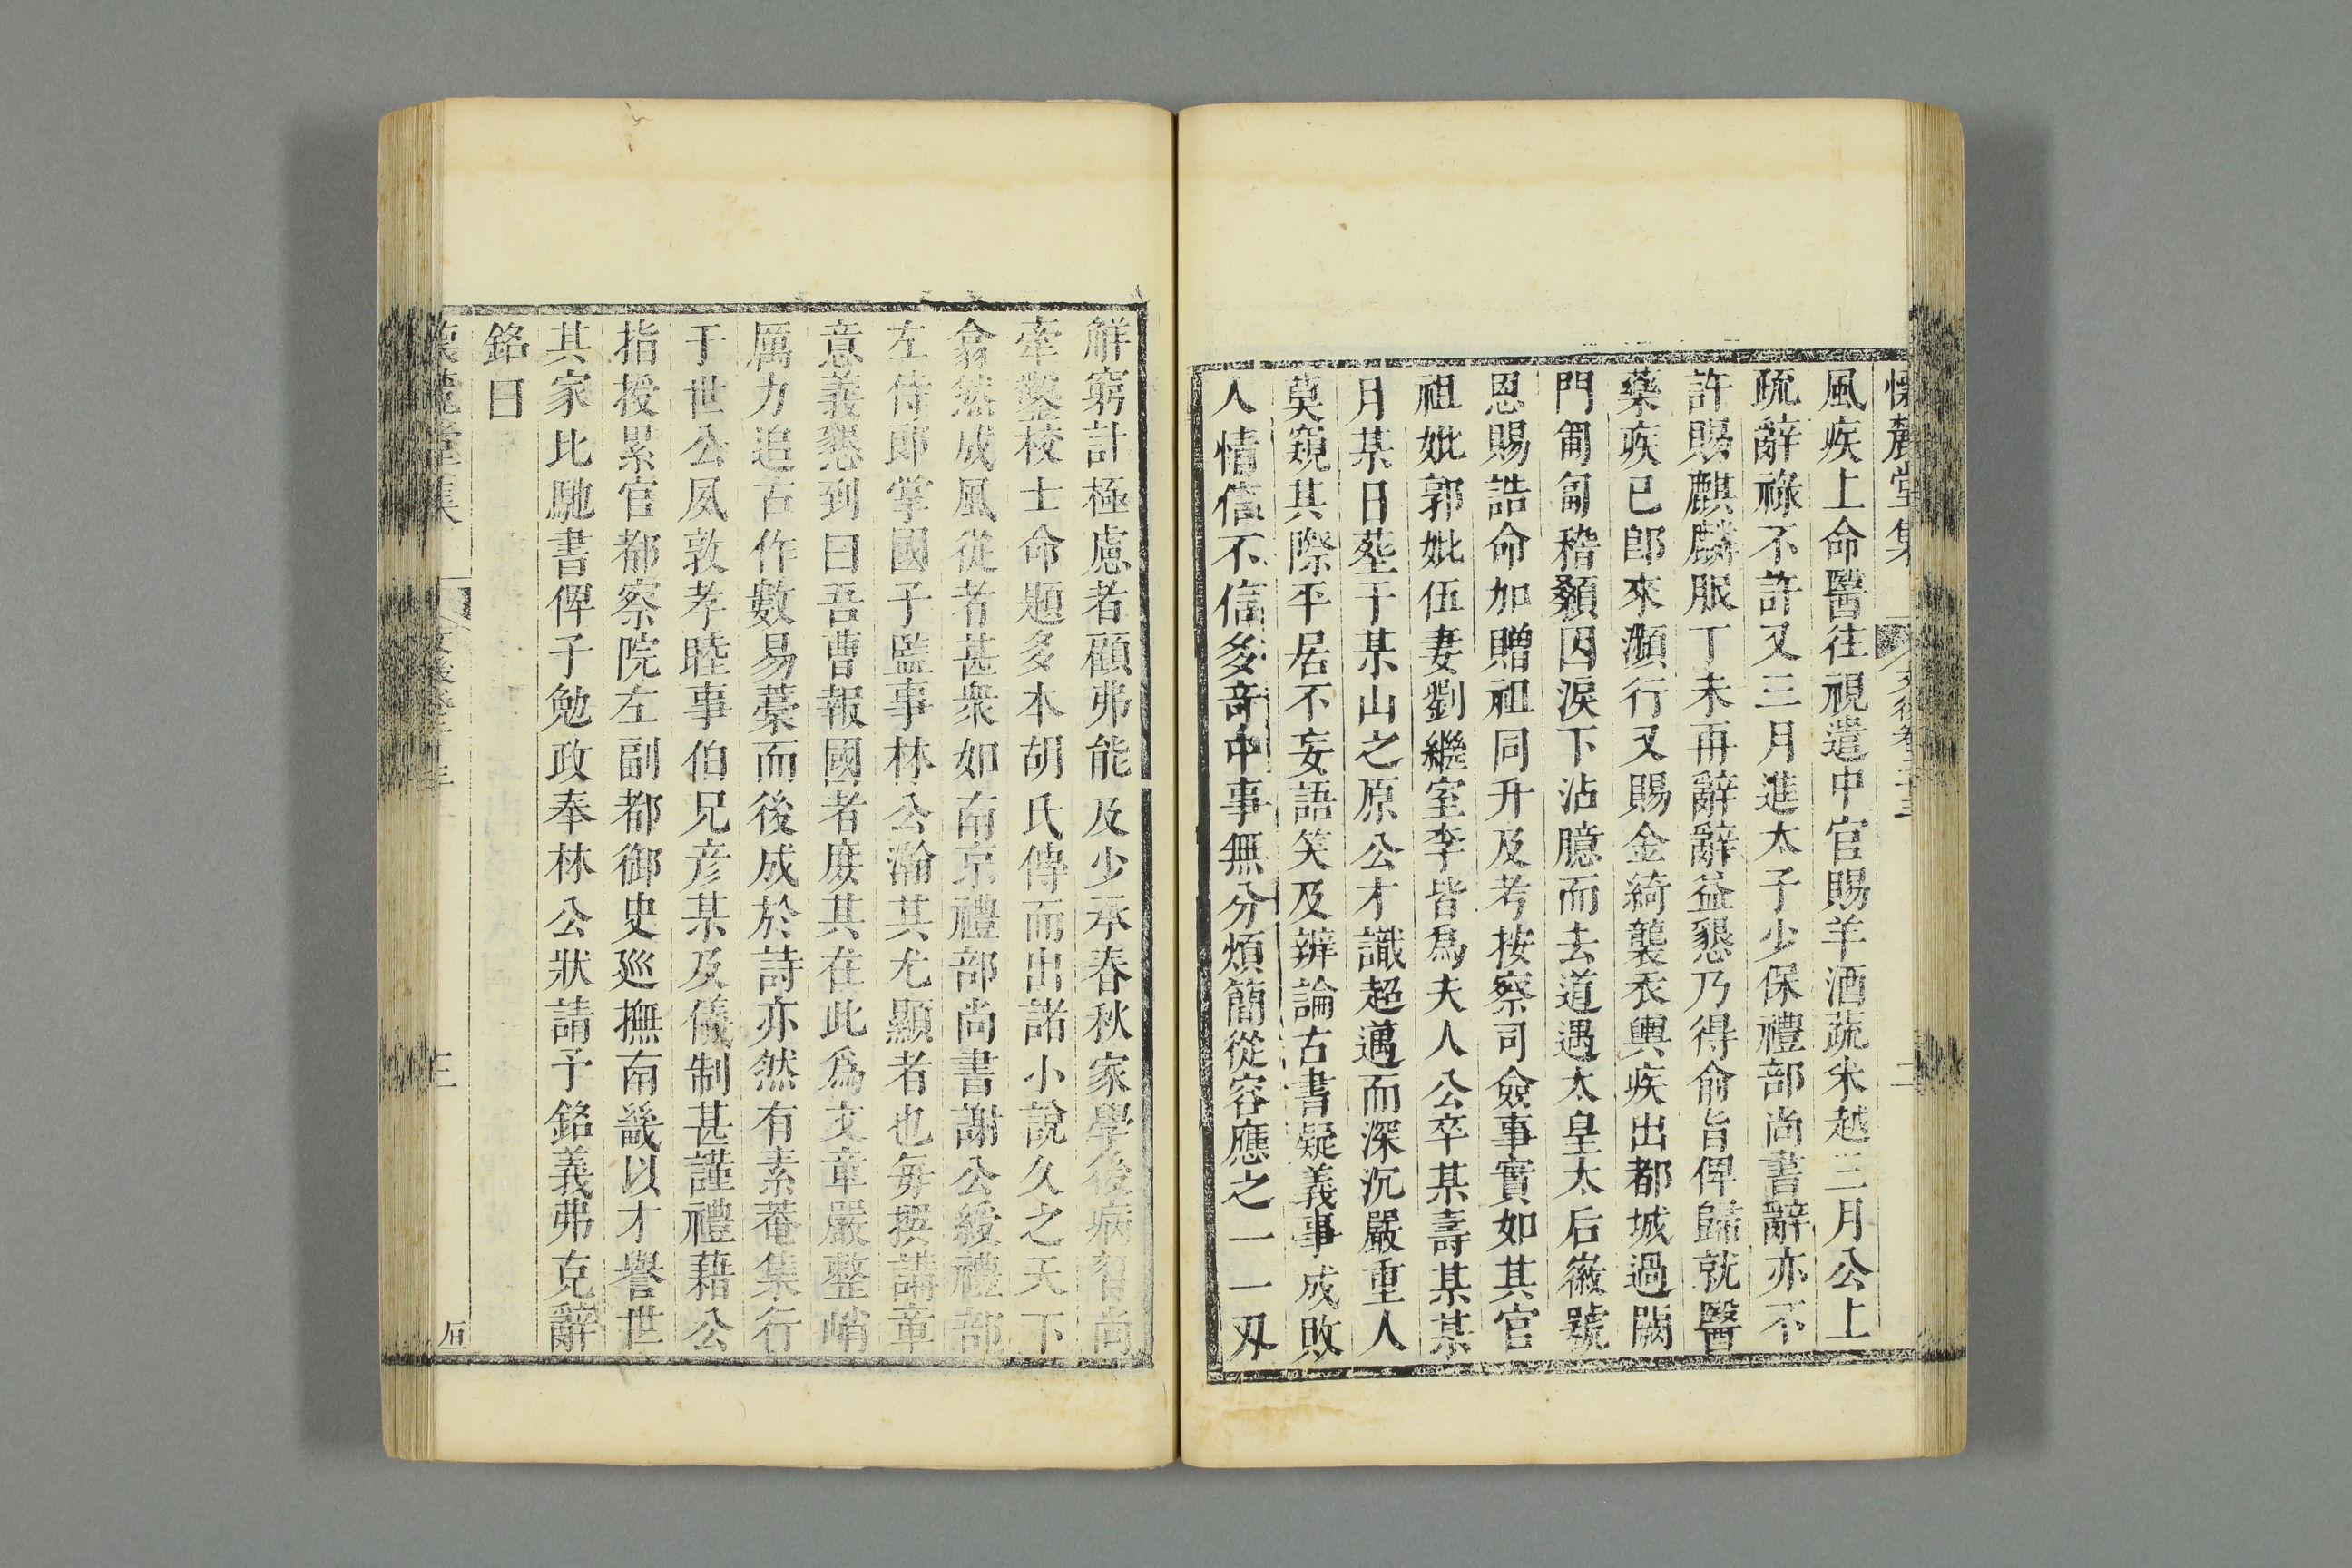 懷麓堂集 文後卷二十三 二
風疾上命醫徃視遣中官賜羊酒蔬米越三月公上
疏辭祿不許又三月進太子少保禮部尚書辭亦不
許賜麒麟服丁未再辭辭益懇乃得俞旨俾歸就醫
藥疾已卽來瀕行又賜金綺襲衣輿疾出都城過闕
門匍匐稽顙因淚下沾臆而去道遇太皇太后徽號
恩賜誥命加贈祖同升及考按察司僉事實如其官
祖妣郭妣伍妻劉繼室李皆爲夫人公卒某壽某某
月某日塟于某山之原公才識超邁而深沉嚴重人
莫窺其際平居不妄語笑及辨論古書疑義事成敗
人情信不信多竒中事無分煩簡從容應之一一刃
觧窮計極慮者顧弗能及少承春秋家學後病習尚
牽鑿校士命題多本胡氏傳而出諸小說久之天下
翕然成風從者甚衆如南京禮部尚書謝公綬禮部
左侍郎掌國子監事林公瀚其尤顯者也每撰講章
意義懇到曰吾曹報國者庻其在此爲文章嚴整峭
厲力追古作數易藁而後成於詩亦然有素菴集行
于世公夙敦孝睦事伯兄彦某及儀制甚謹禮藉公
指授累官都察院左副都御史廵撫南畿以才譽世
其家比馳書俾子勉政奉林公狀請予銘義弗克辭
銘曰
懷麓堂集 文後卷二十三 三